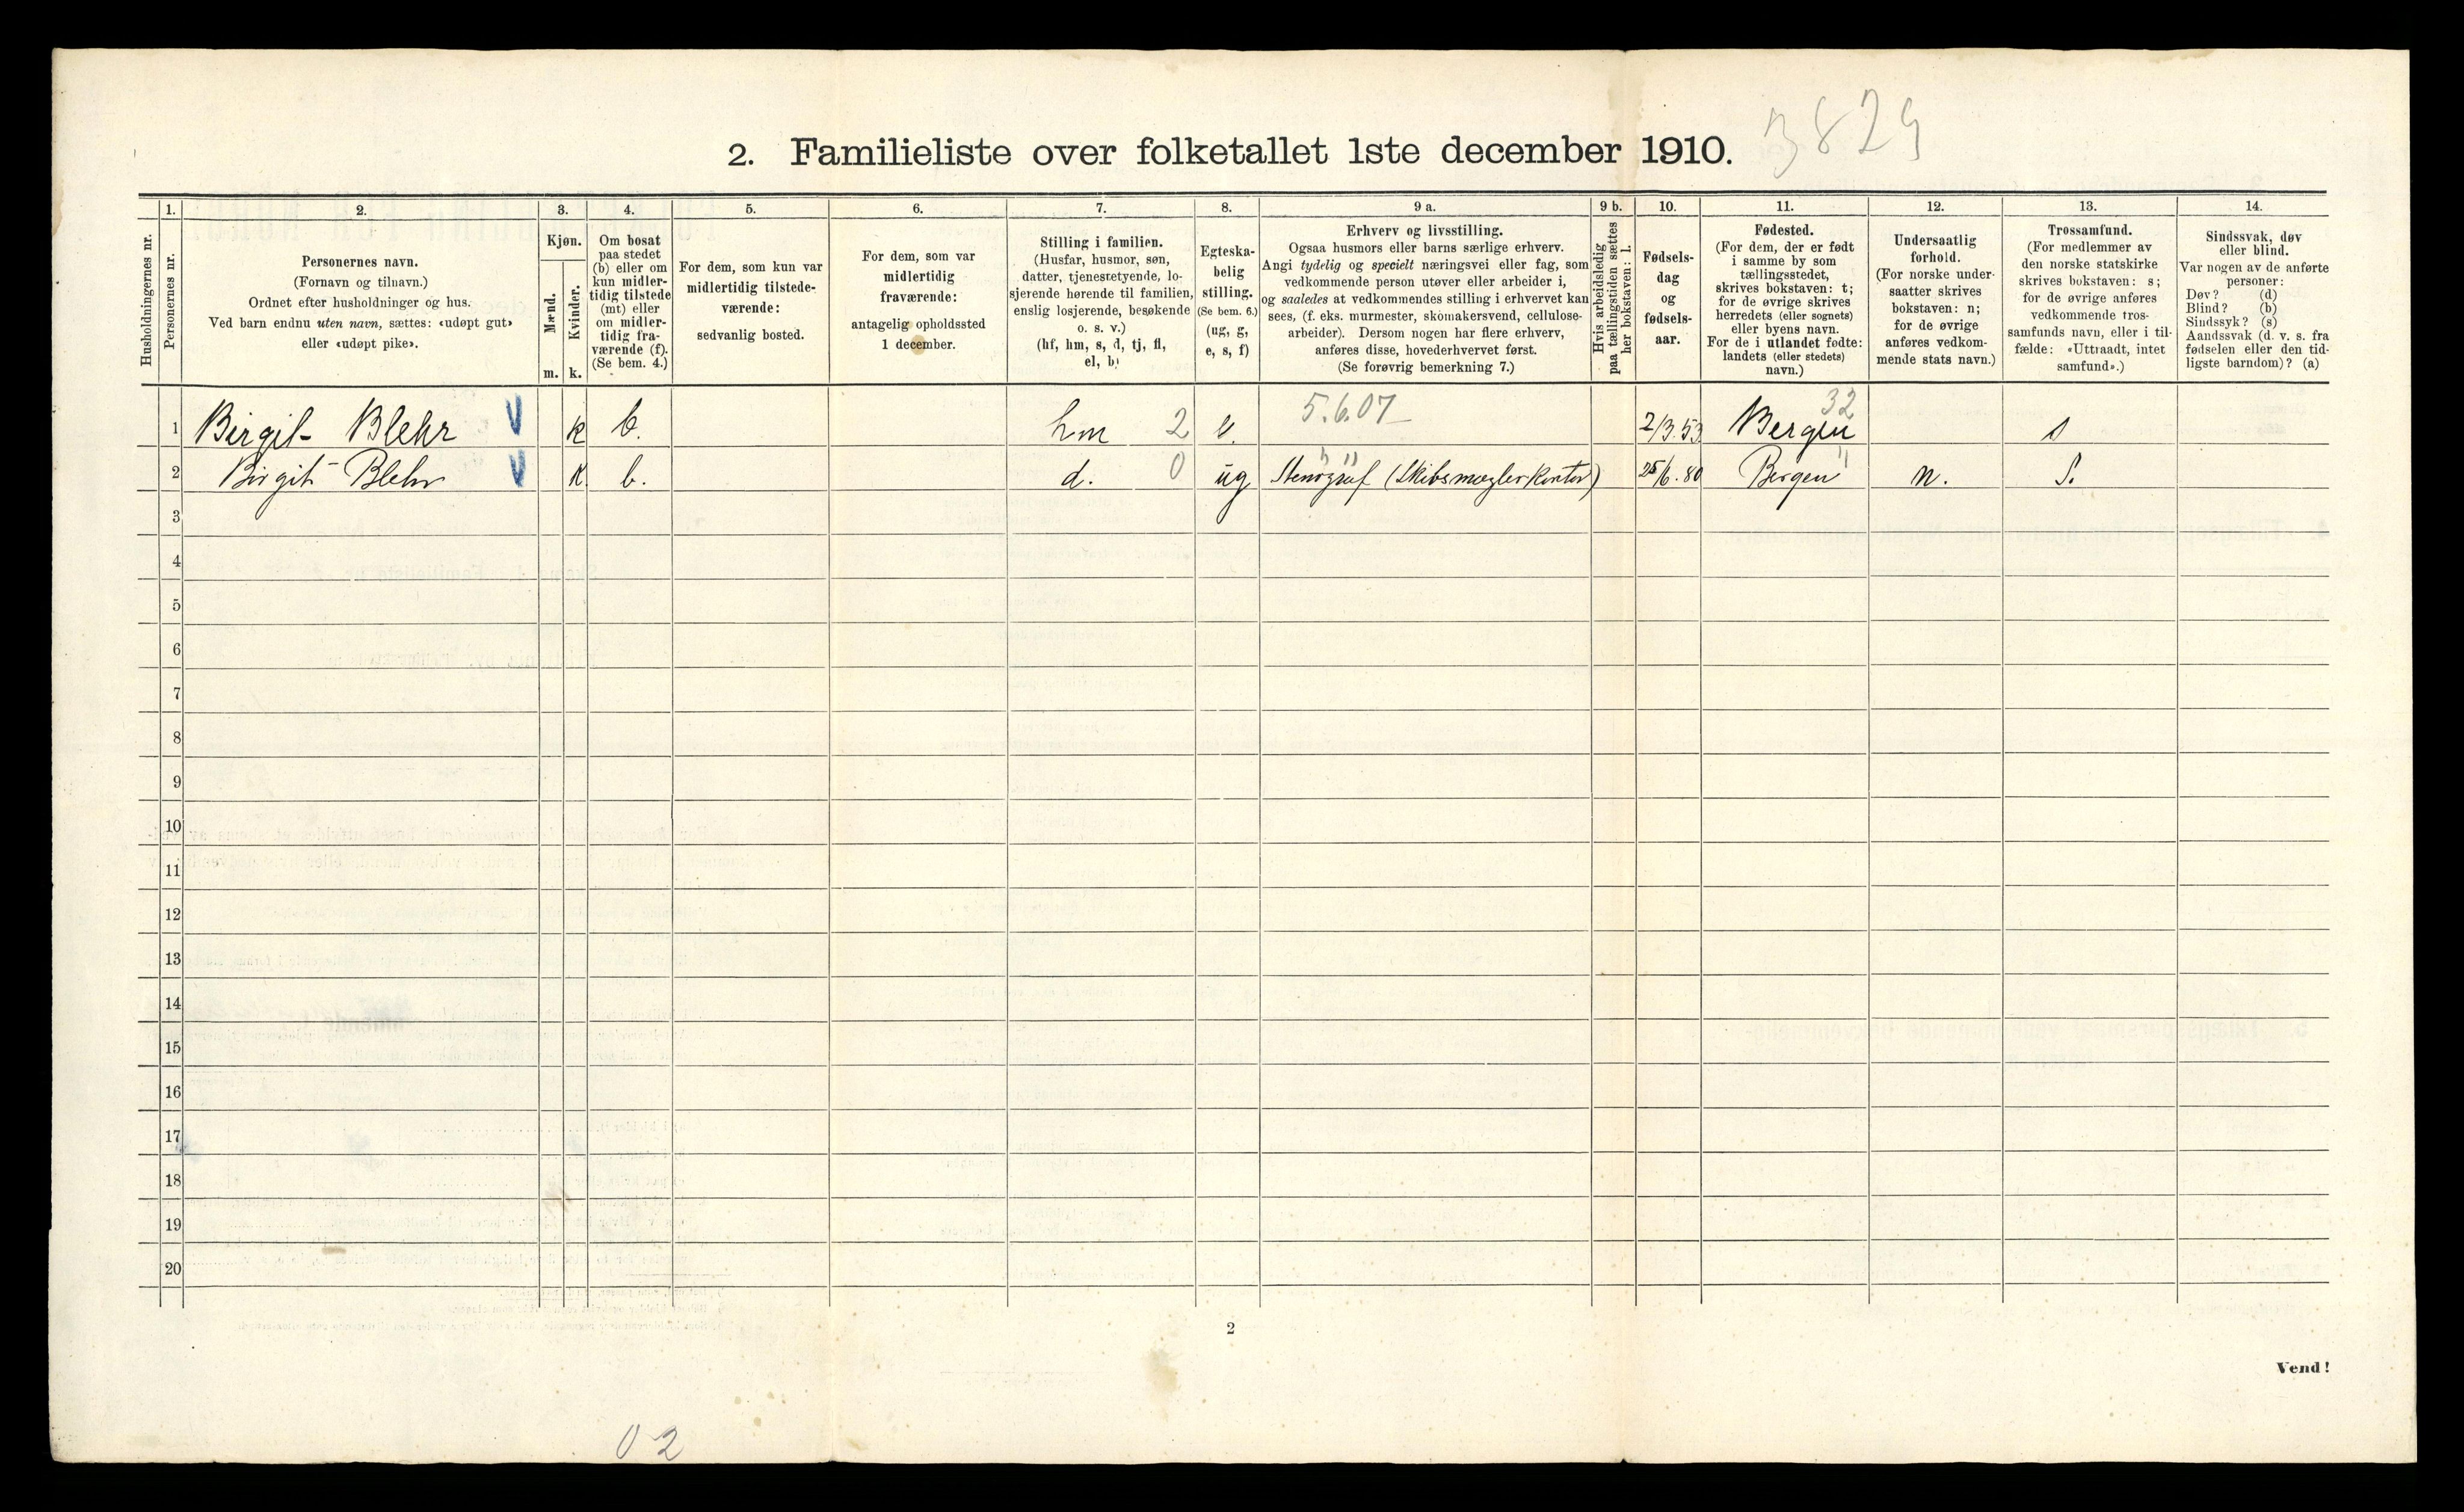 3829
2. Familieliste over folketallet 1ste december 1910.
Husholdningernes nr.
1.
Personernes nr.
2.
Personernes navn.
(Fornavn og tilnavn.)
Ordnet efter husholdninger og hus.
Ved barn endnu uten navn, sættes: «udøpt gut»
eller «udøpt pike».
3.
Kjøn.
Mænd.
m.
Kvinder.
k.
4.
Om bosat
paa stedet
(b) eller om
kun midler-
tidig tilstede
(mt) eller
om midler-
tidig fra-
værende (f).
(Se bem. 4.)
5.
For dem, som kun var
midlertidig tilstede-
værende:
sedvanlig bosted.
6.
For dem, som var
midlertidig
fraværende:
antagelig opholdssted
1 december.
7.
Stilling i familien.
(Husfar, husmor, søn,
datter, tjenestetyende, lo-
sjerende hørende til familien,
enslig losjerende, besøkende
o. s. v.)
(hf, hm, s, d, tj, fl,
el, b)
8.
Egteska-
belig
stilling.
(Se bem. 6.)
(ug, g,
e, s, f)
9 a.
Erhverv og livsstilling.
Ogsaa husmors eller barns særlige erhverv.
Angi tydelig og specielt næringsvei eller fag, som
vedkommende person utøver eller arbeider i,
og saaledes at vedkommendes stilling i erhvervet kan
sees, (f. eks. murmester, skomakersvend, cellulose-
arbeider). Dersom nogen har flere erhverv,
anføres disse, hovederhvervet først.
(Se forøvrig bemerkning 7.)
9 b.
Hvis arbeidsledig
paa tællingstiden sættes
her bokstaven: l.
10.
Fødsels-
dag
og
fødsels-
aar.
11.
Fødested.
(For dem, der er født
i samme by som
tællingsstedet,
skrives bokstaven: t;
for de øvrige skrives
herredets (eller sognets)
eller byens navn.
For de i utlandet fødte:
landets (eller stedets)
navn.)
12.
Undersaatlig
forhold.
(For norske under-
saatter skrives
bokstaven: n;
for de øvrige
anføres vedkom-
mende stats navn.)
13.
Trossamfund.
(For medlemmer av
den norske statskirke
skrives bokstaven: s;
for de øvrige anføres
vedkommende tros-
samfunds navn, eller i til-
fælde: «Uttraadt, intet
samfund».)
14.
Sindssvak, døv
eller blind.
Var nogen av de anførte
personer:
Døv? (d)
Blind? (b)
Sindssyk? (s)
Aandssvak (d. v. s. fra
fødselen eller den tid-
ligste barndom)? (a)
1 Birgit Blehr V k b. hm 2 e. 5.6.07 2/3.53 Bergen 32 s
2 Birgit Blehr V k. b. d. 0 ug Stenograf (Skibsmæglerkontor) 25/6.80 Bergen " n. S.
3
4
5
6
7
8
9
10
11
12
13
14
15
16
17
18
19
20
2
Vend!
02